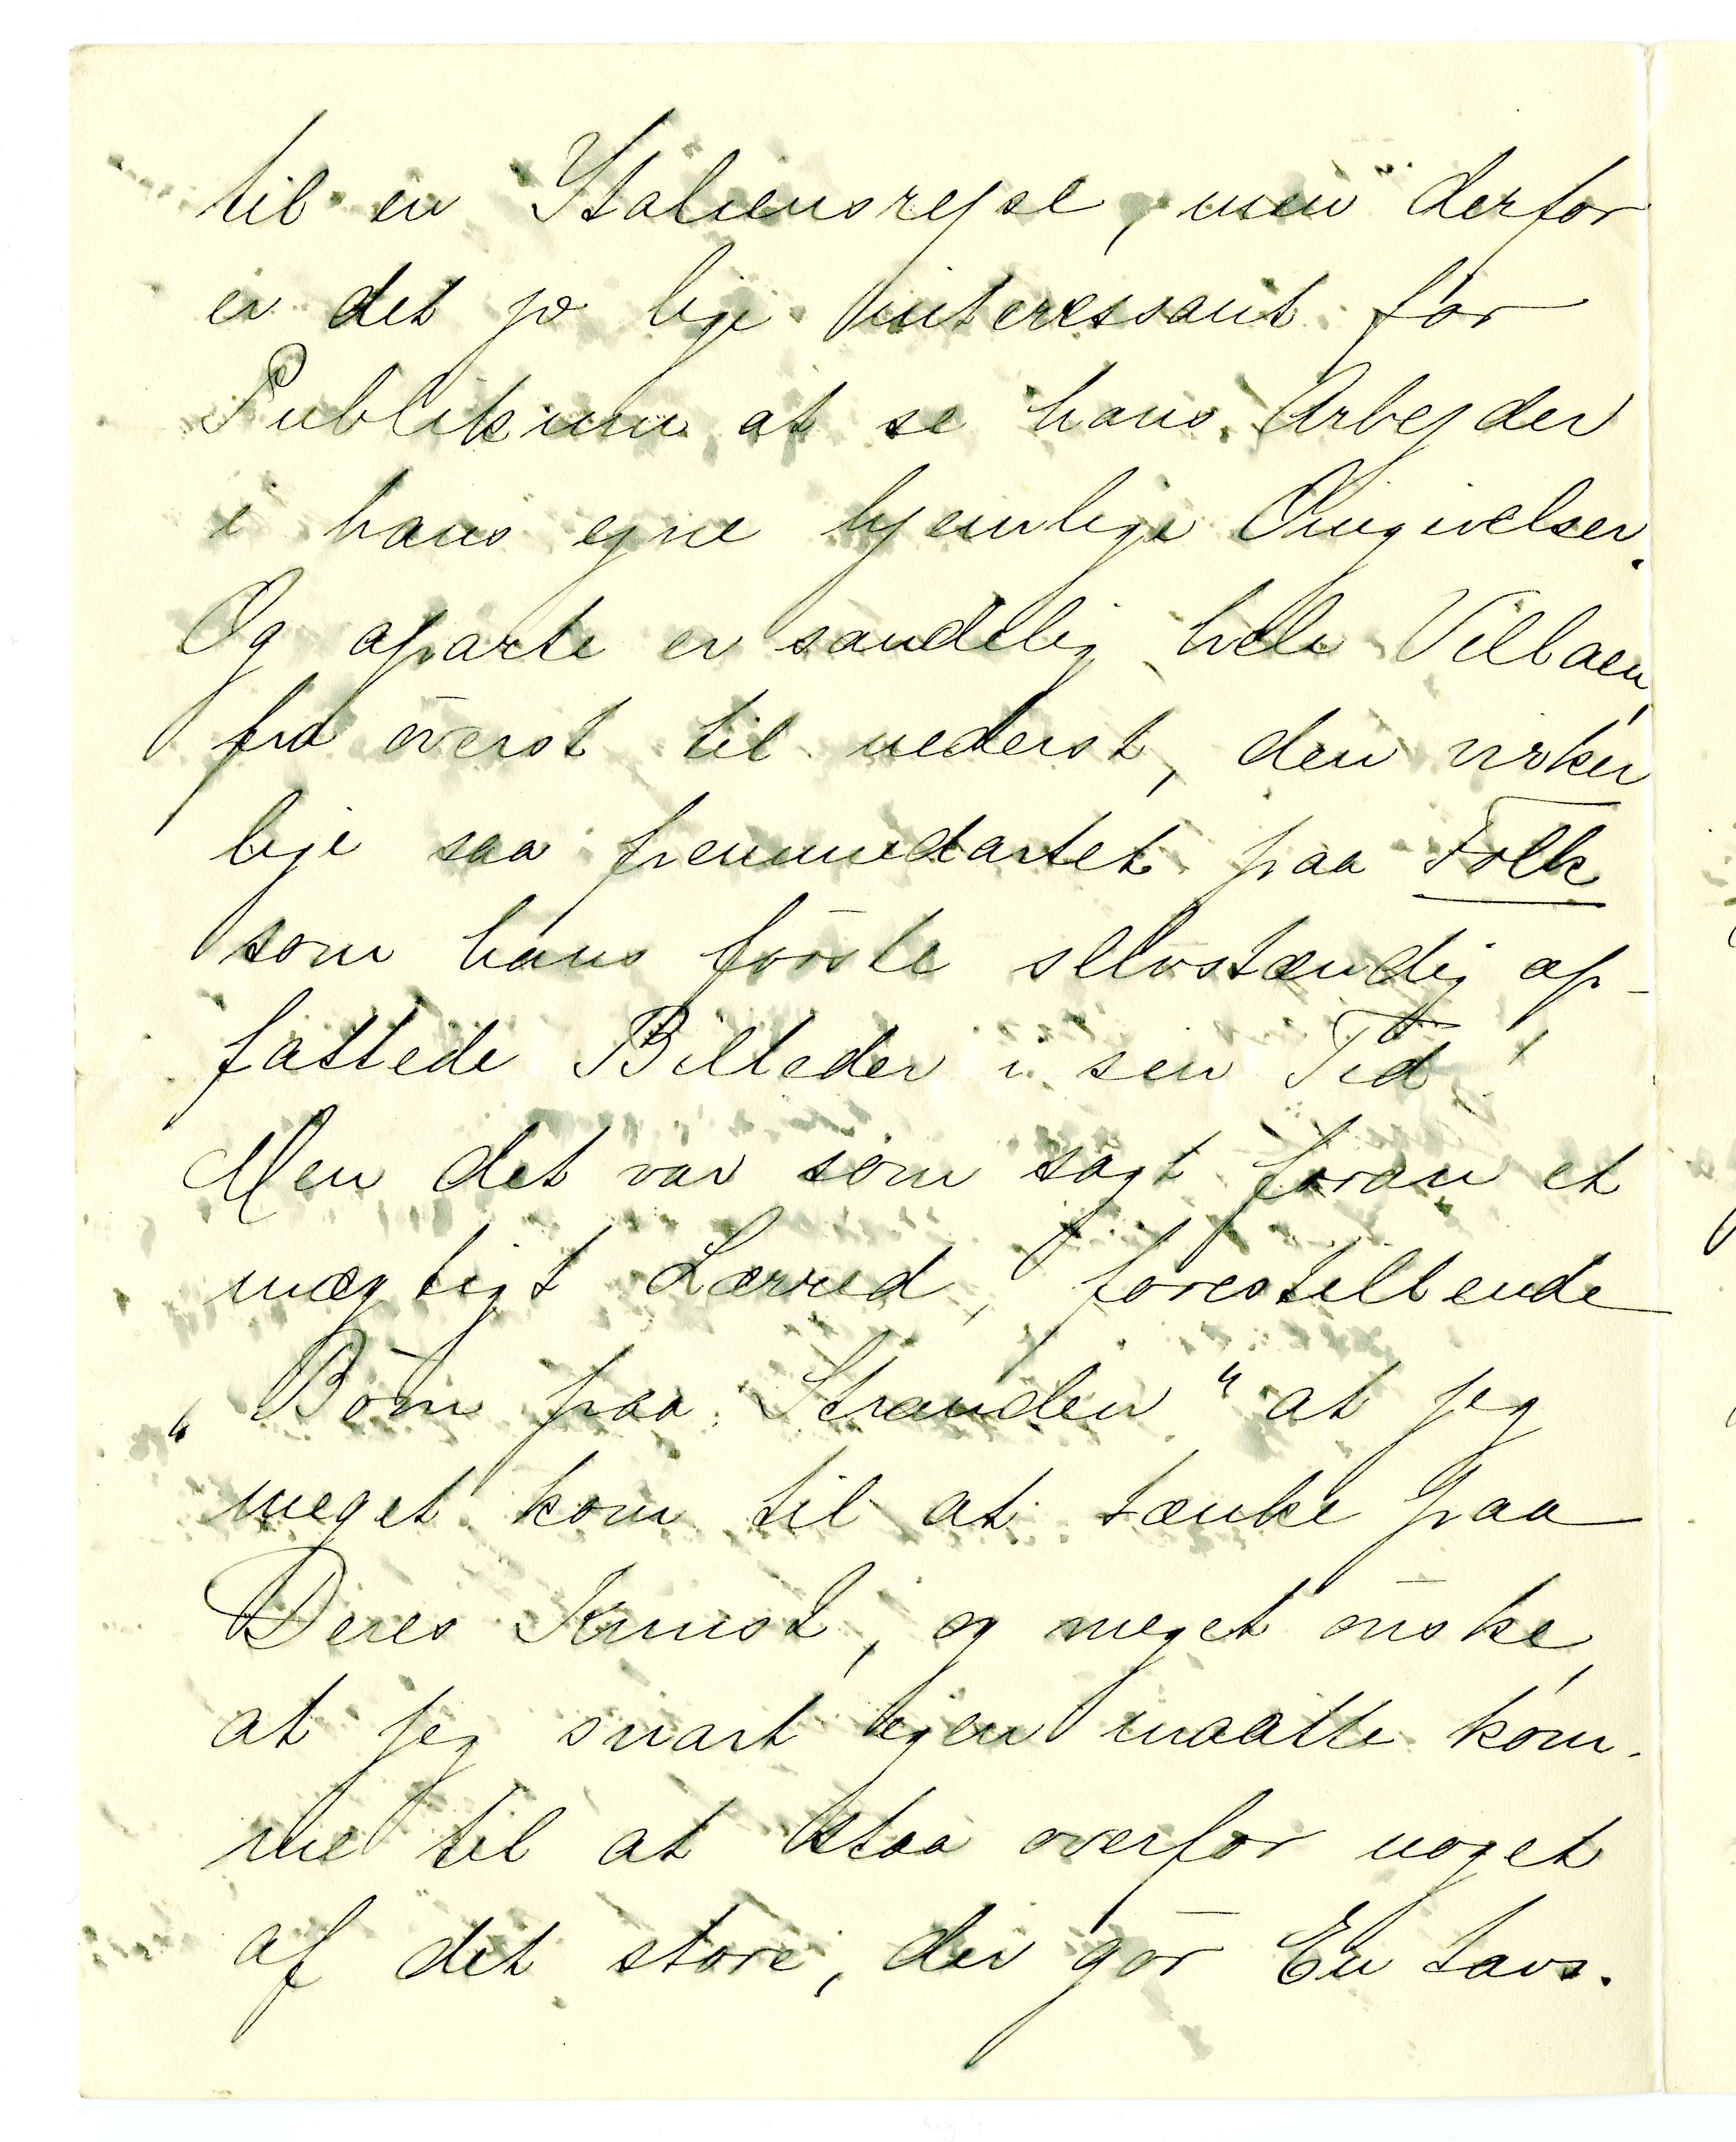 til en Italiensrejse, men derfor
er det jo lige interessant for
Publikum at se hans Arbejder
i hans egne hjemlige Omgivelser.
Og aparte er sandelig hele Villaen,
fra øverst til nederst, den virker
lige saa fremmedartet paa Folk
som hans første selvstændig op-
fattede Billeder i sin Tid!
Men det var som sagt foran et
mægtigt Lærred, forestillende
„Børn paa Stranden“ at jeg
meget kom til at tænke paa
Deres Kunst, og meget ønske,
at jeg snart igen maatte kom-
me til at staa overfor noget
af det store, der gør En tavs.